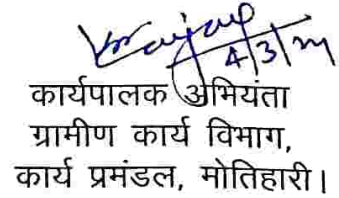 4/3/24
कार्यपालक अभियंता
ग्रामीण कार्य विभाग,
कार्य प्रमंडल, मोतिहारी।